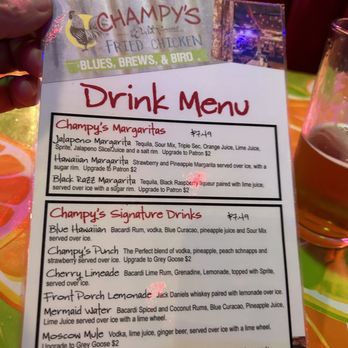 CHAMPY'S
FRIED CHICKEN
BLUES, BREWS, & BIRD
Drink Menu
Champy's Margaritas $7.49
Jalapeno Margarita Tequila, Sour Mix, Triple Sec, Orange Juice, Lime Juice,
Sprite, Jalapeno Slice Juice and a salt rim. Upgrade to Patron $2
Hawaiian Margarita Strawberry and Pineapple Margarita served over ice, with a
sugar rim. Upgrade to Patron $2
Black Razz Margarita Tequila, Black Raspberry liqueur paired with lime juice,
served over ice with a sugar rim. Upgrade to Patron $2
Champy's Signature Drinks $7.49
Blue Hawaiian Bacardi Rum, vodka, Blue Curacao, pineapple juice and Sour Mix
served over ice.
Champy's Punch The Perfect blend of vodka, pineapple, peach schnapps and
strawberry served over ice. Upgrade to Grey Goose $2
Cherry Limeade Bacardi Lime Rum, Grenadine, Lemonade, topped with Sprite,
served over ice.
Front Porch Lemonade Jack Daniels whiskey paired with lemonade over ice.
Mermaid Water Bacardi Spiced and Coconut Rums, Blue Curacao, Pineapple Juice,
Lime Juice served over ice with a lime wheel.
Moscow Mule Vodka, lime juice, ginger beer, served over ice with a lime wheel.
Upgrade to Grey Goose $2